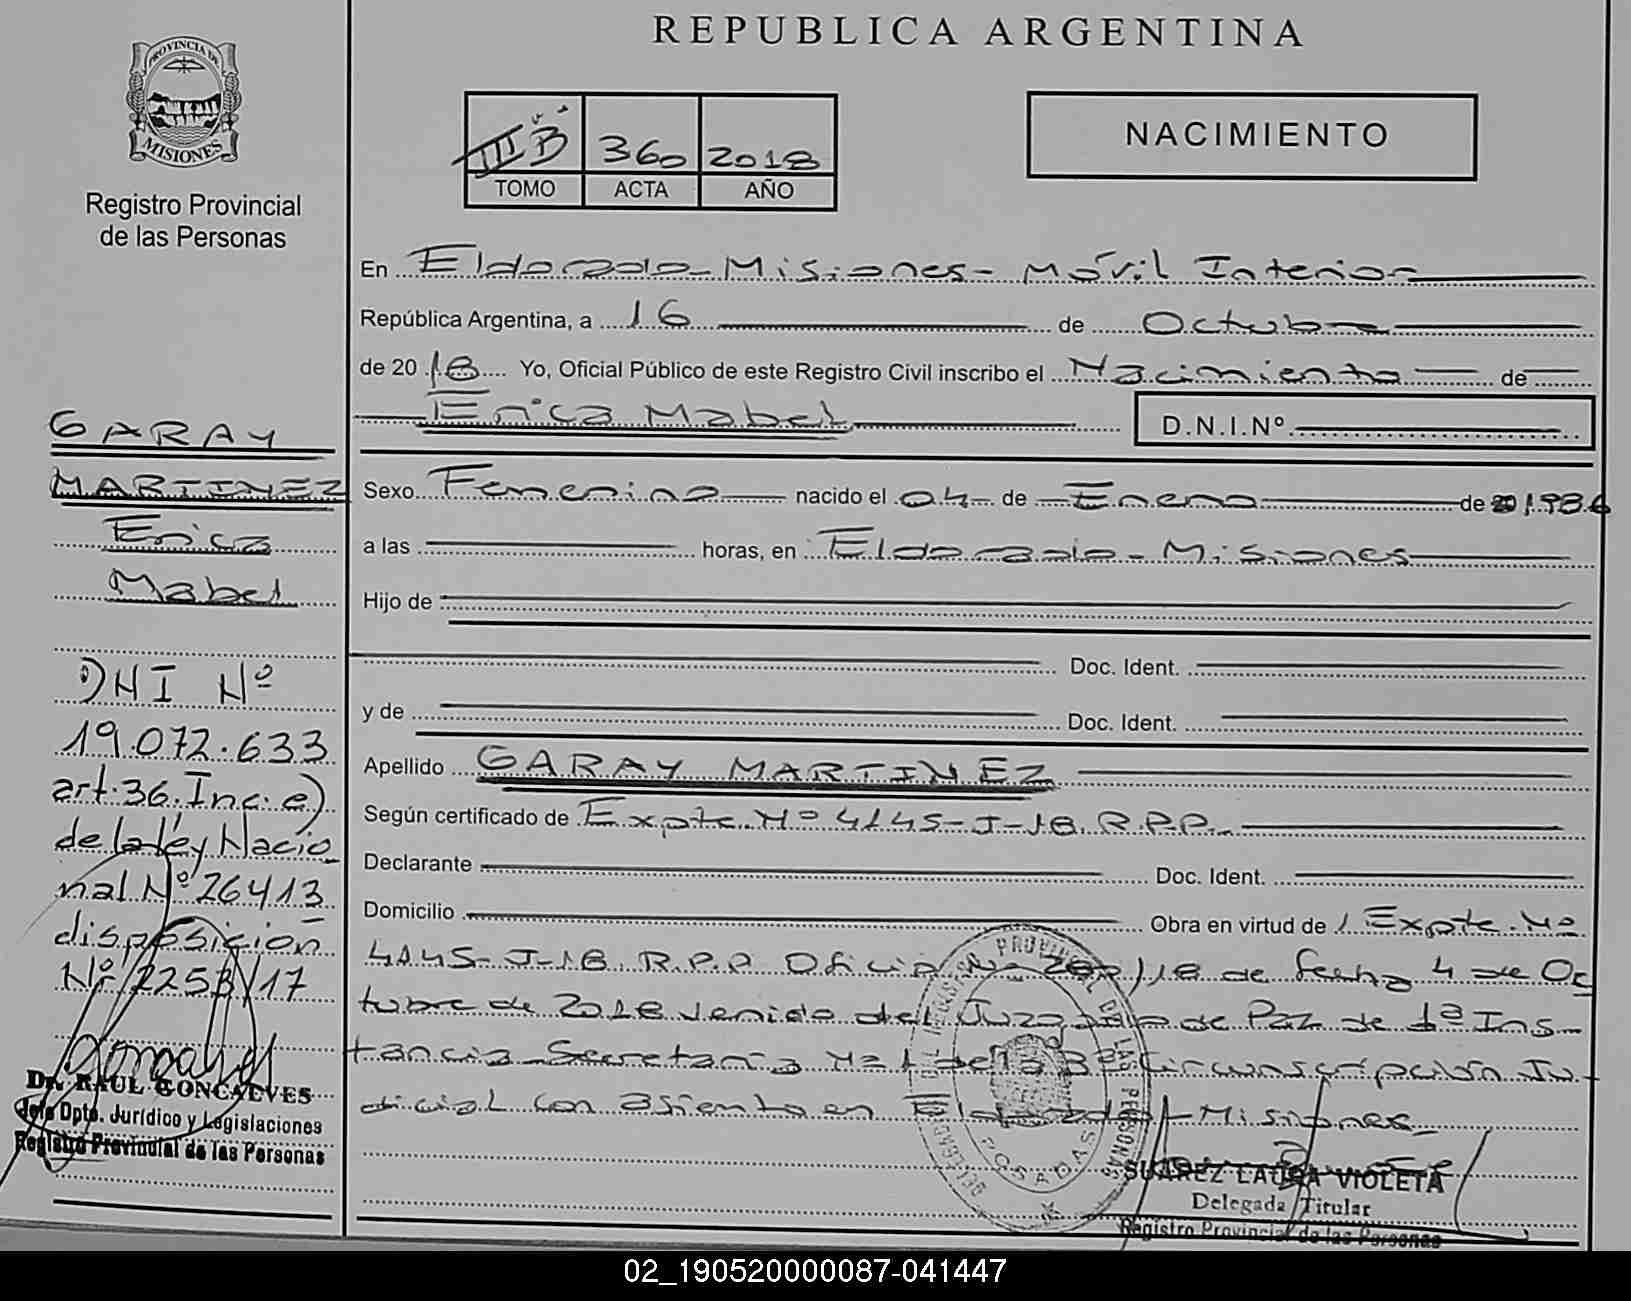 REPUBLICA ARGENTINA
PROVINCIA DE
MISIONES
Registro Provincial
de las Personas
III B 360 2018
TOMO ACTA AÑO
NACIMIENTO
En Eldorado - Misiones - Móvil Interior
República Argentina, a 16 de Octubre
de 2018 Yo, Oficial Público de este Registro Civil inscribo el Nacimiento de
Erica Mabel D.N.I.Nº
Sexo Femenino nacido el 04 de Enero de 1986
a las horas, en Eldorado - Misiones
Hijo de
Doc. Ident.
y de Doc. Ident.
Apellido GARAY MARTINEZ
Según certificado de Expte. Nº 4145-J-18 R.P.P.
Declarante Doc. Ident.
Domicilio Obra en virtud de 1 Expte. Nº
4145-J-18 R.P.P Oficio Nº /18 de fecha 4 de Oc
tubre de 2018 venido del Juzgado de Paz de 1ª Ins
tancia Secretaría Nº 1 de la 3ª Circunscripción Ju
dicial con asiento en Eldorado - Misiones
GARAY
MARTINEZ
Erica
Mabel
DNI Nº
19.072.633
art. 36. Inc. e)
de la ley Nacio
nal Nº 26413
disposición
Nº 2253/17
Dr. RAUL GONCALVES
Jefe Dpto. Jurídico y Legislaciones
Registro Provincial de las Personas
POSADAS
SUAREZ LAURA VIOLETA
Delegada Titular
Registro Provincial de las Personas
02_190520000087-041447